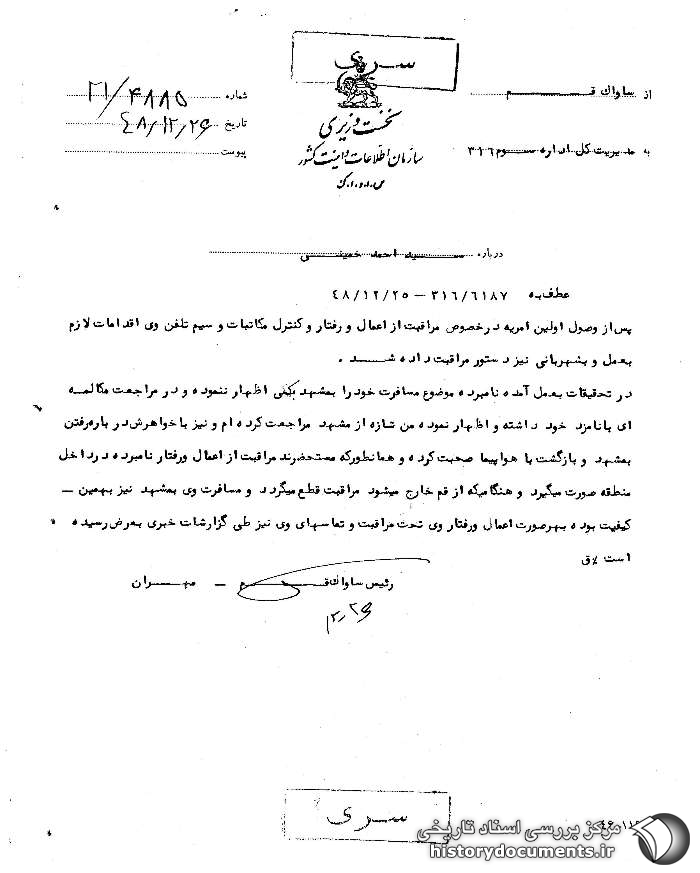 سری
از ساواک قم
شماره ۲۱/۴۸۸۵
نخست وزیری
تاریخ ۴۸/۱۲/۲۶
سازمان اطلاعات و امنیت کشور
به مدیریت کل اداره سوم ۳۱۶
پیوست
س.ا.و.ا.ک
درباره سید احمد خمینی
عطف به ۳۱۶/۶۱۸۷ – ۴۸/۱۲/۲۵
پس از وصول اولین امریه درخصوص مراقبت از اعمال و رفتار و کنترل مکاتبات و سیم تلفن وی اقدامات لازم
بعمل و بشهربانی نیز دستور مراقبت داده شد .
در تحقیقات بعمل آمده نامبرده موضوع مسافرت خود را بمشهد بکلی اظهار ننموده و در مراجعت مکالمه
ای با نامزد خود داشته و اظهار نموده من تازه از مشهد مراجعت کرده ام و نیز با خواهرش در باره رفتن
بمشهد و بازگشت با هواپیما صحبت کرده و همانطورکه مستحضرند مراقبت از اعمال و رفتار نامبرده در داخل
منطقه صورت میگیرد و هنگامیکه از قم خارج میشود مراقبت قطع میگردد و مسافرت وی بمشهد نیز بهمین –
کیفیت بوده بهرصورت اعمال و رفتار وی تحت مراقبت و تماسهای وی نیز طی گزارشات خبری بعرض رسیده
است
رئیس ساواک قم – مهران
۱۲/۲۶
سری
مرکز بررسی اسناد تاریخی
historydocuments.ir